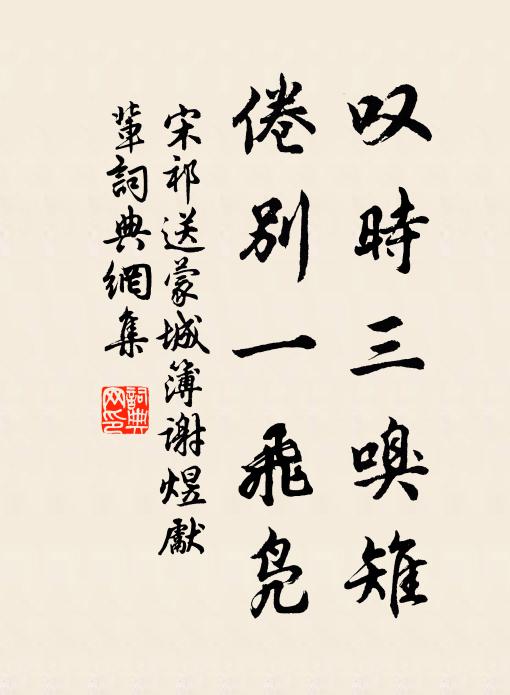 叹時三嗅雉
倦別一飛凫
宋祁送蒙城簿謝煜獻
輩詞典網集
詞典网印